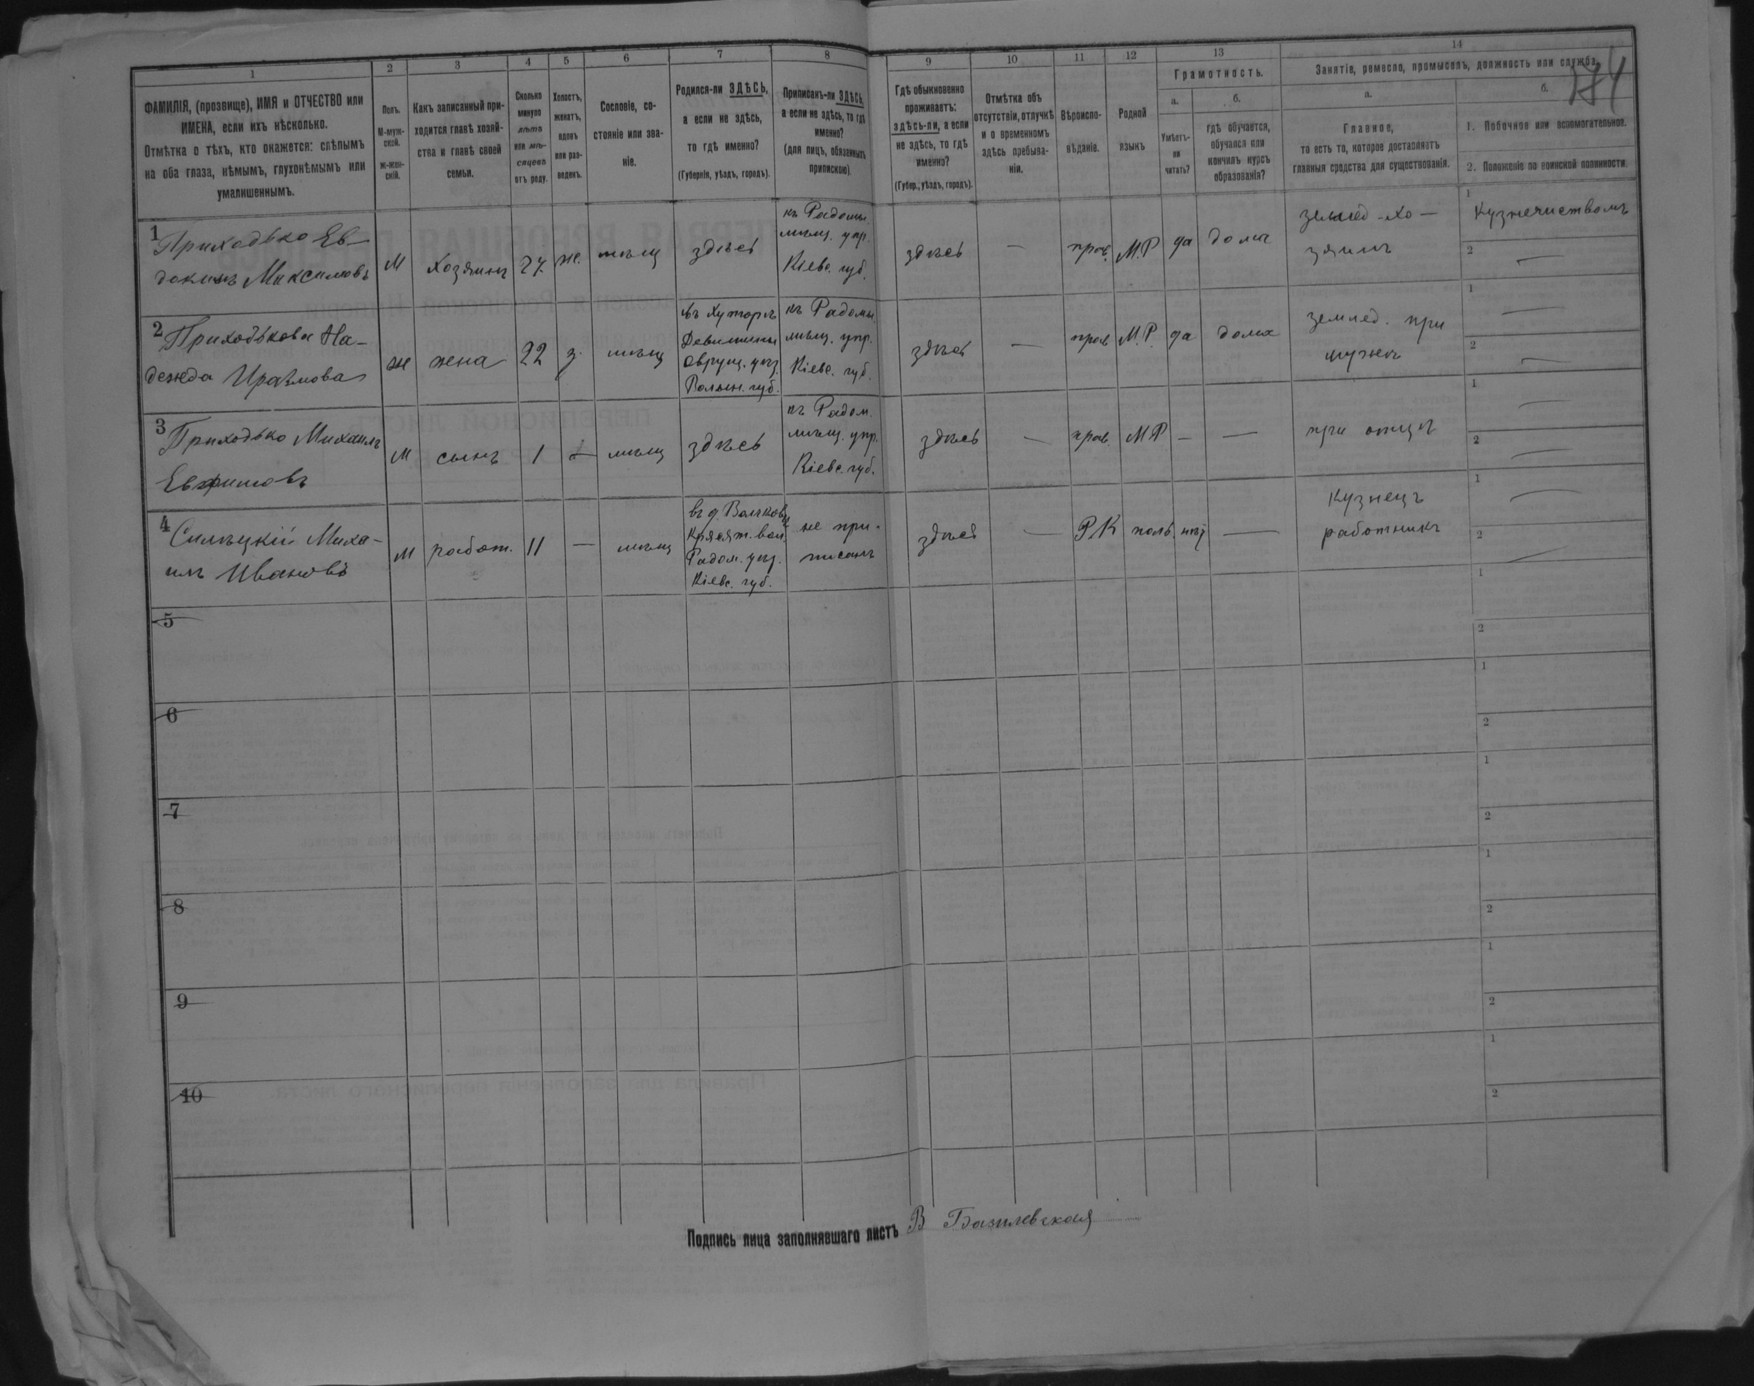 1 2 3 4 5 6 7 8 9 10 11 12 13 14
174
ФАМИЛІЯ, (прозвище), ИМЯ и ОТЧЕСТВО или
ИМЕНА, если ихъ нѣсколько.
Отмѣтка о тѣхъ, кто окажется: слѣпымъ
на оба глаза, нѣмымъ, глухонѣмымъ или
умалишеннымъ.
Полъ.
М-муж-
ской.
Ж-жен-
скій.
Какъ записанный при-
ходится главѣ хозяй-
ства и главѣ своей
семьи.
Сколько
минуло
лѣтъ
или мѣ-
сяцевъ
отъ роду.
Холостъ,
женатъ,
вдовъ
или раз-
веденъ.
Сословіе, со-
стояніе или зва-
ніе.
Родился-ли ЗДѢСЬ,
а если не здѣсь,
то гдѣ именно?
(Губернія, уѣздъ, городъ).
Приписанъ-ли ЗДѢСЬ,
а если не здѣсь, то гдѣ
именно?
(для лицъ, обязанныхъ
припискою).
Гдѣ обыкновенно
проживаетъ:
здѣсь-ли, а если
не здѣсь, то гдѣ
именно?
(Губер., уѣздъ, городъ).
Отмѣтка объ
отсутствіи, отлучкѣ
и о временномъ
здѣсь пребыва-
ніи.
Вѣроиспо-
вѣданіе.
Родной
языкъ
Грамотность.
а.
Умѣетъ-
ли
читать?
б.
гдѣ обучается,
обучался или
кончилъ курсъ
образованія?
Занятіе, ремесло, промыселъ, должность или служба.
а.
Главное,
то есть то, которое доставляетъ
главныя средства для существованія.
б.
1. Побочное или вспомогательное.
2. Положеніе по воинской повинности.
1 Приходько Ев-
докимъ Максимовъ
М
хозяинъ
27
ж.
мѣщ
здѣсь
къ Радомы.
мѣщ. упр.
Кіевс. губ.
здѣсь
—
прав.
М.Р.
да
дома
землед-хо-
зяинъ
1 Кузнечествомъ
2 —
2 Приходькова На-
дежда
ж
жена
22
з.
мѣщ
въ хуторѣ
Овруц. уѣз.
Волын. губ.
къ Радомы.
мѣщ. упр.
Кіевс. губ.
здѣсь
—
прав
М.Р.
да
дома
землед. при
мужѣ
1 —
2 —
3 Приходько Михаилъ
Евдокимовъ
М
сынъ
1
—
мѣщ
здѣсь
къ Радом.
мѣщ. упр.
Кіевс. губ.
здѣсь
—
прав.
МР
—
—
при отцѣ
1 —
2 —
4 Миха-
илъ Ивановъ
М
работ.
11
—
мѣщ
въ д.
Радом. уѣз.
Кіевс. губ.
не при-
писанъ
здѣсь
—
РК
поль
нѣт
—
Кузнецъ
работникъ
1 —
2 —
5
1
2
6
1
2
7
1
2
8
1
2
9
1
2
10
1
2
Подпись лица заполнявшаго листъ В Базилевская